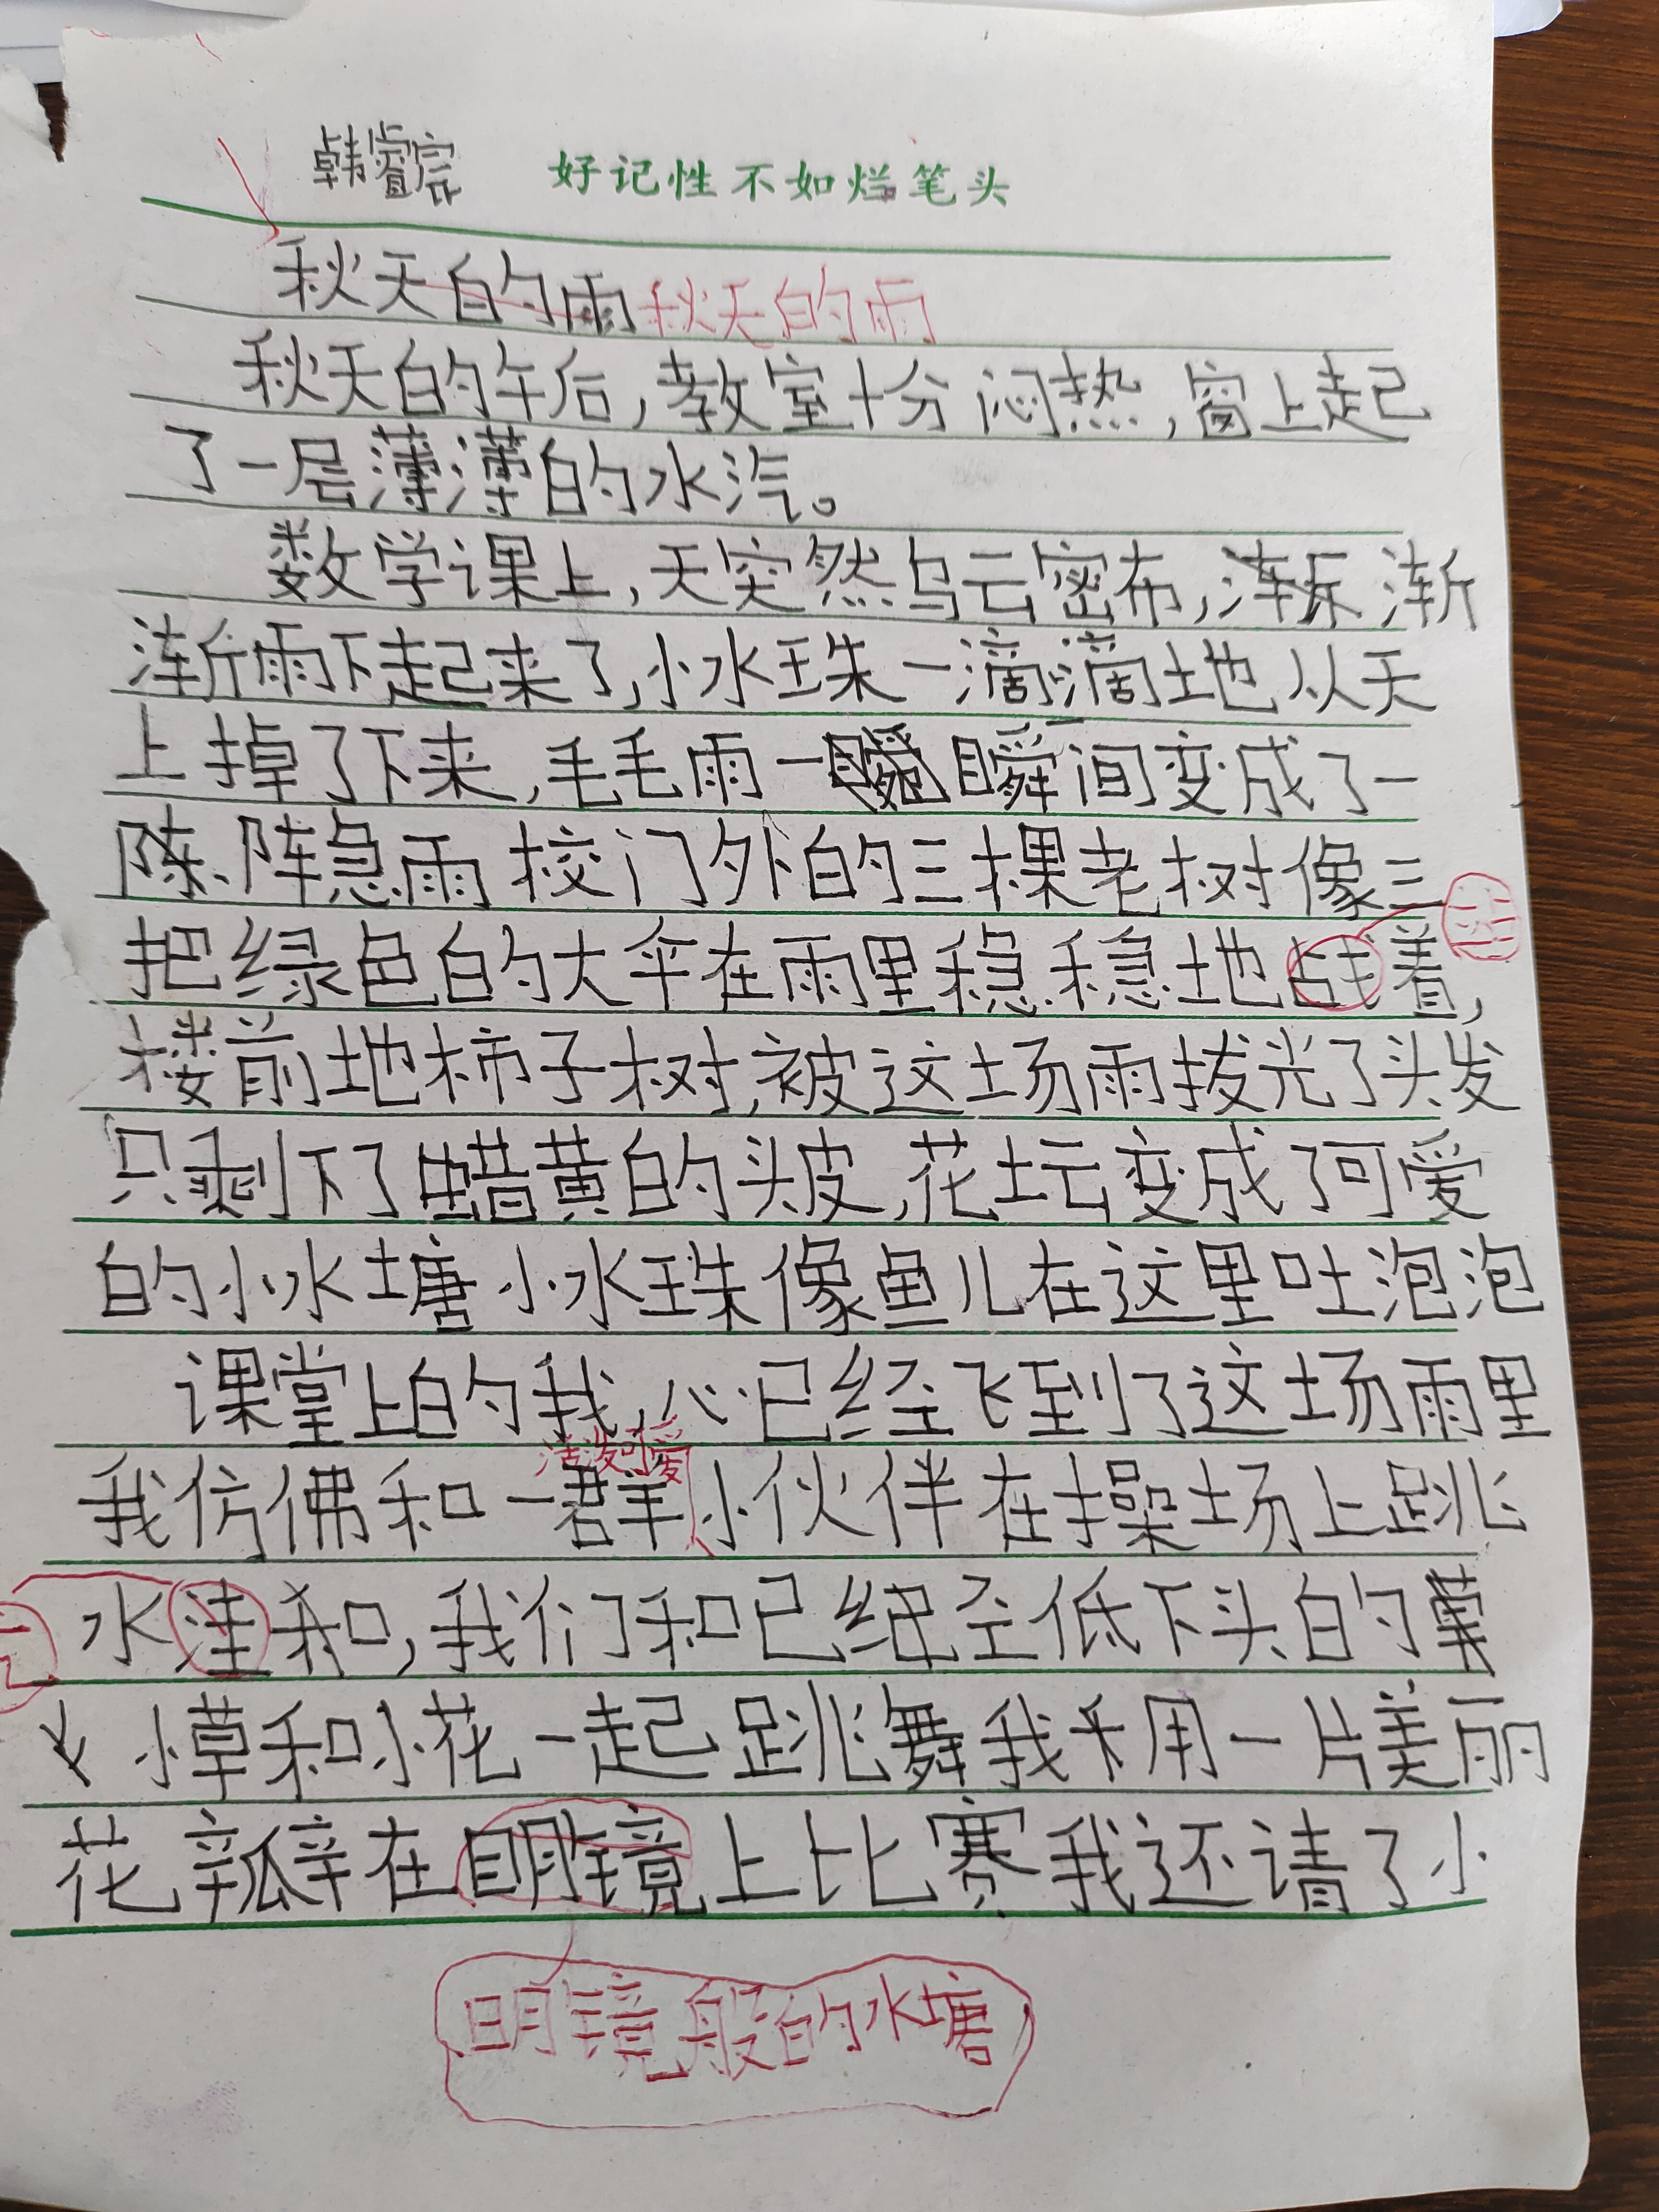 韩睿宸 好记性不如烂笔头
秋天的雨 秋天的雨
秋天的午后,教室十分闷热,窗上起
了一层薄薄的水汽。
数学课上,天突然乌云密布,渐
渐雨下起来了,小水珠一滴滴地从天
上掉了下来,毛毛雨一瞬间变成了一
阵急雨校门外的三棵老树像三
把绿色的大伞在雨里稳稳地战着,
楼前地柿子树,被这场雨拔光了头发
只剩下了蜡黄的头皮,花坛变成了可爱
的小水塘小水珠像鱼儿在这里吐泡泡
课堂上的我,心已经飞到了这场雨里
活泼可爱
我仿佛和一群小伙伴在操场上跳
水洼和,我们和已经低下头的
小草和小花一起跳舞我利用一片美丽
花瓣在明镜上比赛我还请了小
明镜般的水塘